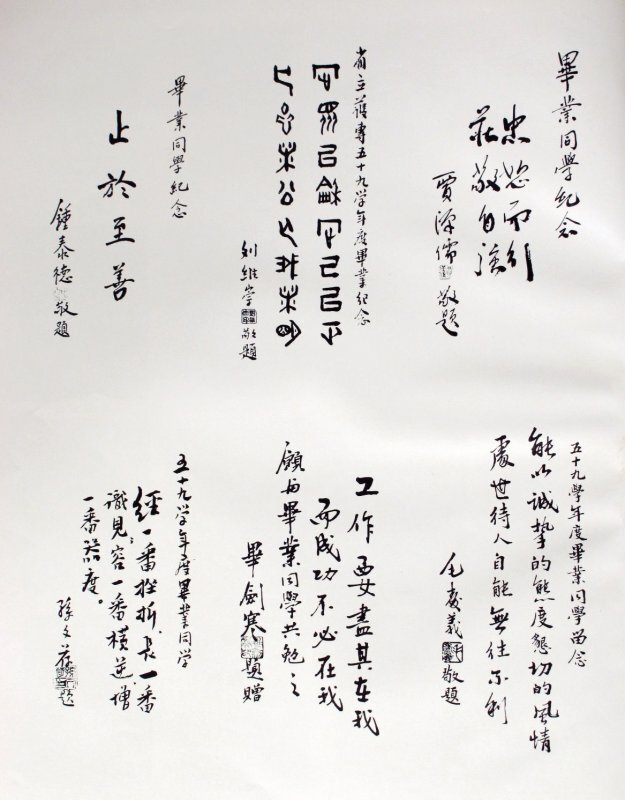 畢業同學紀念
忠恕而行
莊敬自強
賈 儒 敬題
省立護專五十九学年度畢業紀念
刘維 敬題
畢業同學紀念
止於至善
鍾泰德 敬題
五十九學年度畢業同學留念
能以誠摯的態度懇切的風情
處世待人自能無往不利
毛慶義 敬題
工作要盡其在我
而成功不必在我
願与畢業同學共勉之
畢劍寒 題贈
五十九学年度畢業同学
經一番挫折，長一番
識見；容一番橫逆，增
一番器度。
孫文 題